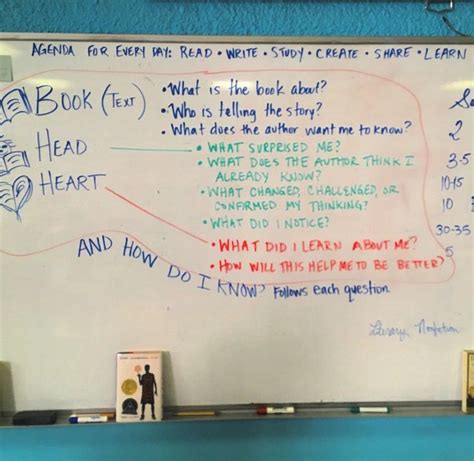 AGENDA FOR EVERY DAY: READ • WRITE • STUDY • CREATE • SHARE • LEARN
BOOK (TEXT)
• What is the book about?
• Who is telling the story?
• What does the author want me to know?
HEAD
• WHAT SURPRISED ME?
• WHAT DOES THE AUTHOR THINK I
ALREADY KNOW?
• WHAT CHANGED, CHALLENGED, OR
CONFIRMED MY THINKING?
• WHAT DID I NOTICE?
HEART
• WHAT DID I LEARN ABOUT ME?
• HOW WILL THIS HELP ME TO BE BETTER?
AND HOW DO I KNOW? Follows each question
2
3-5
10-15
10
30-35
5
Literary Nonfiction